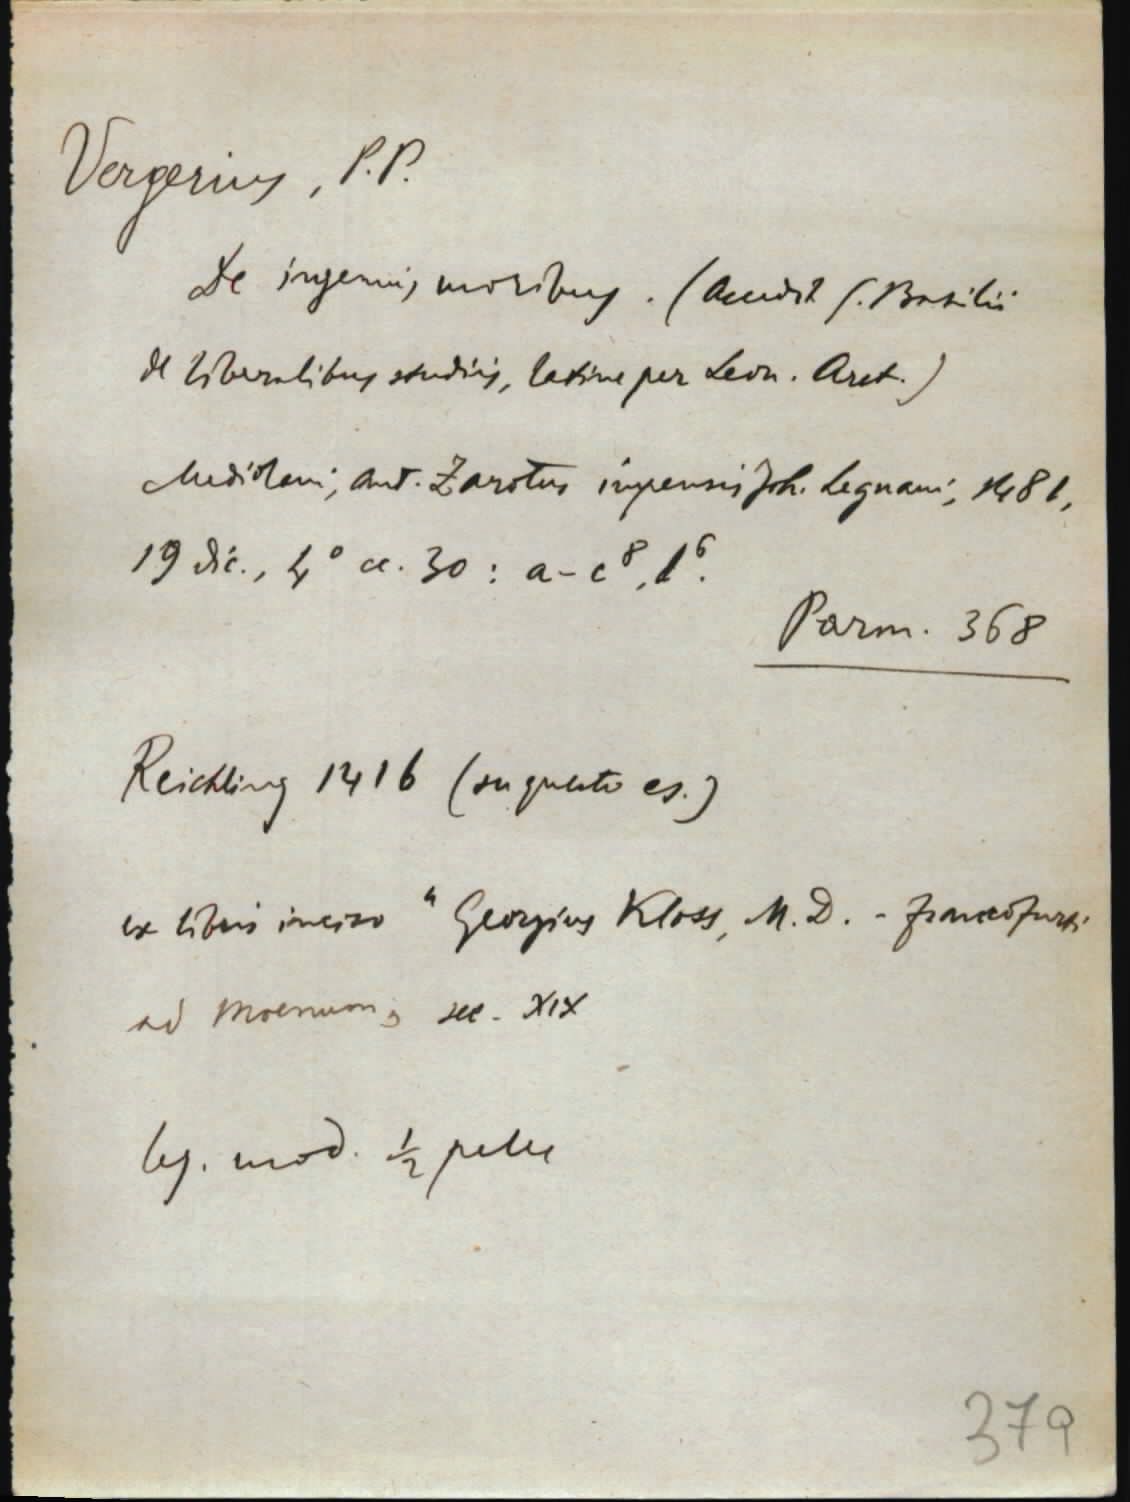 Vergerius, P.P.
De ingenuis moribus. (Accedit S. Basilii
de liberalibus studiis, latine per Leon. Aret.)
Mediolani, Ant. Zarotus impensis Joh. Legnani, 1481,
19 dic., 4° cc. 30: a-c⁸, d⁶.
Parm. 368
Reichling 1416 (su questo es.)
ex libris inciso "Georgius Kloss, M.D. - Francofurti
ad Moenum, sec. XIX
leg. mod. ½ pelle
379